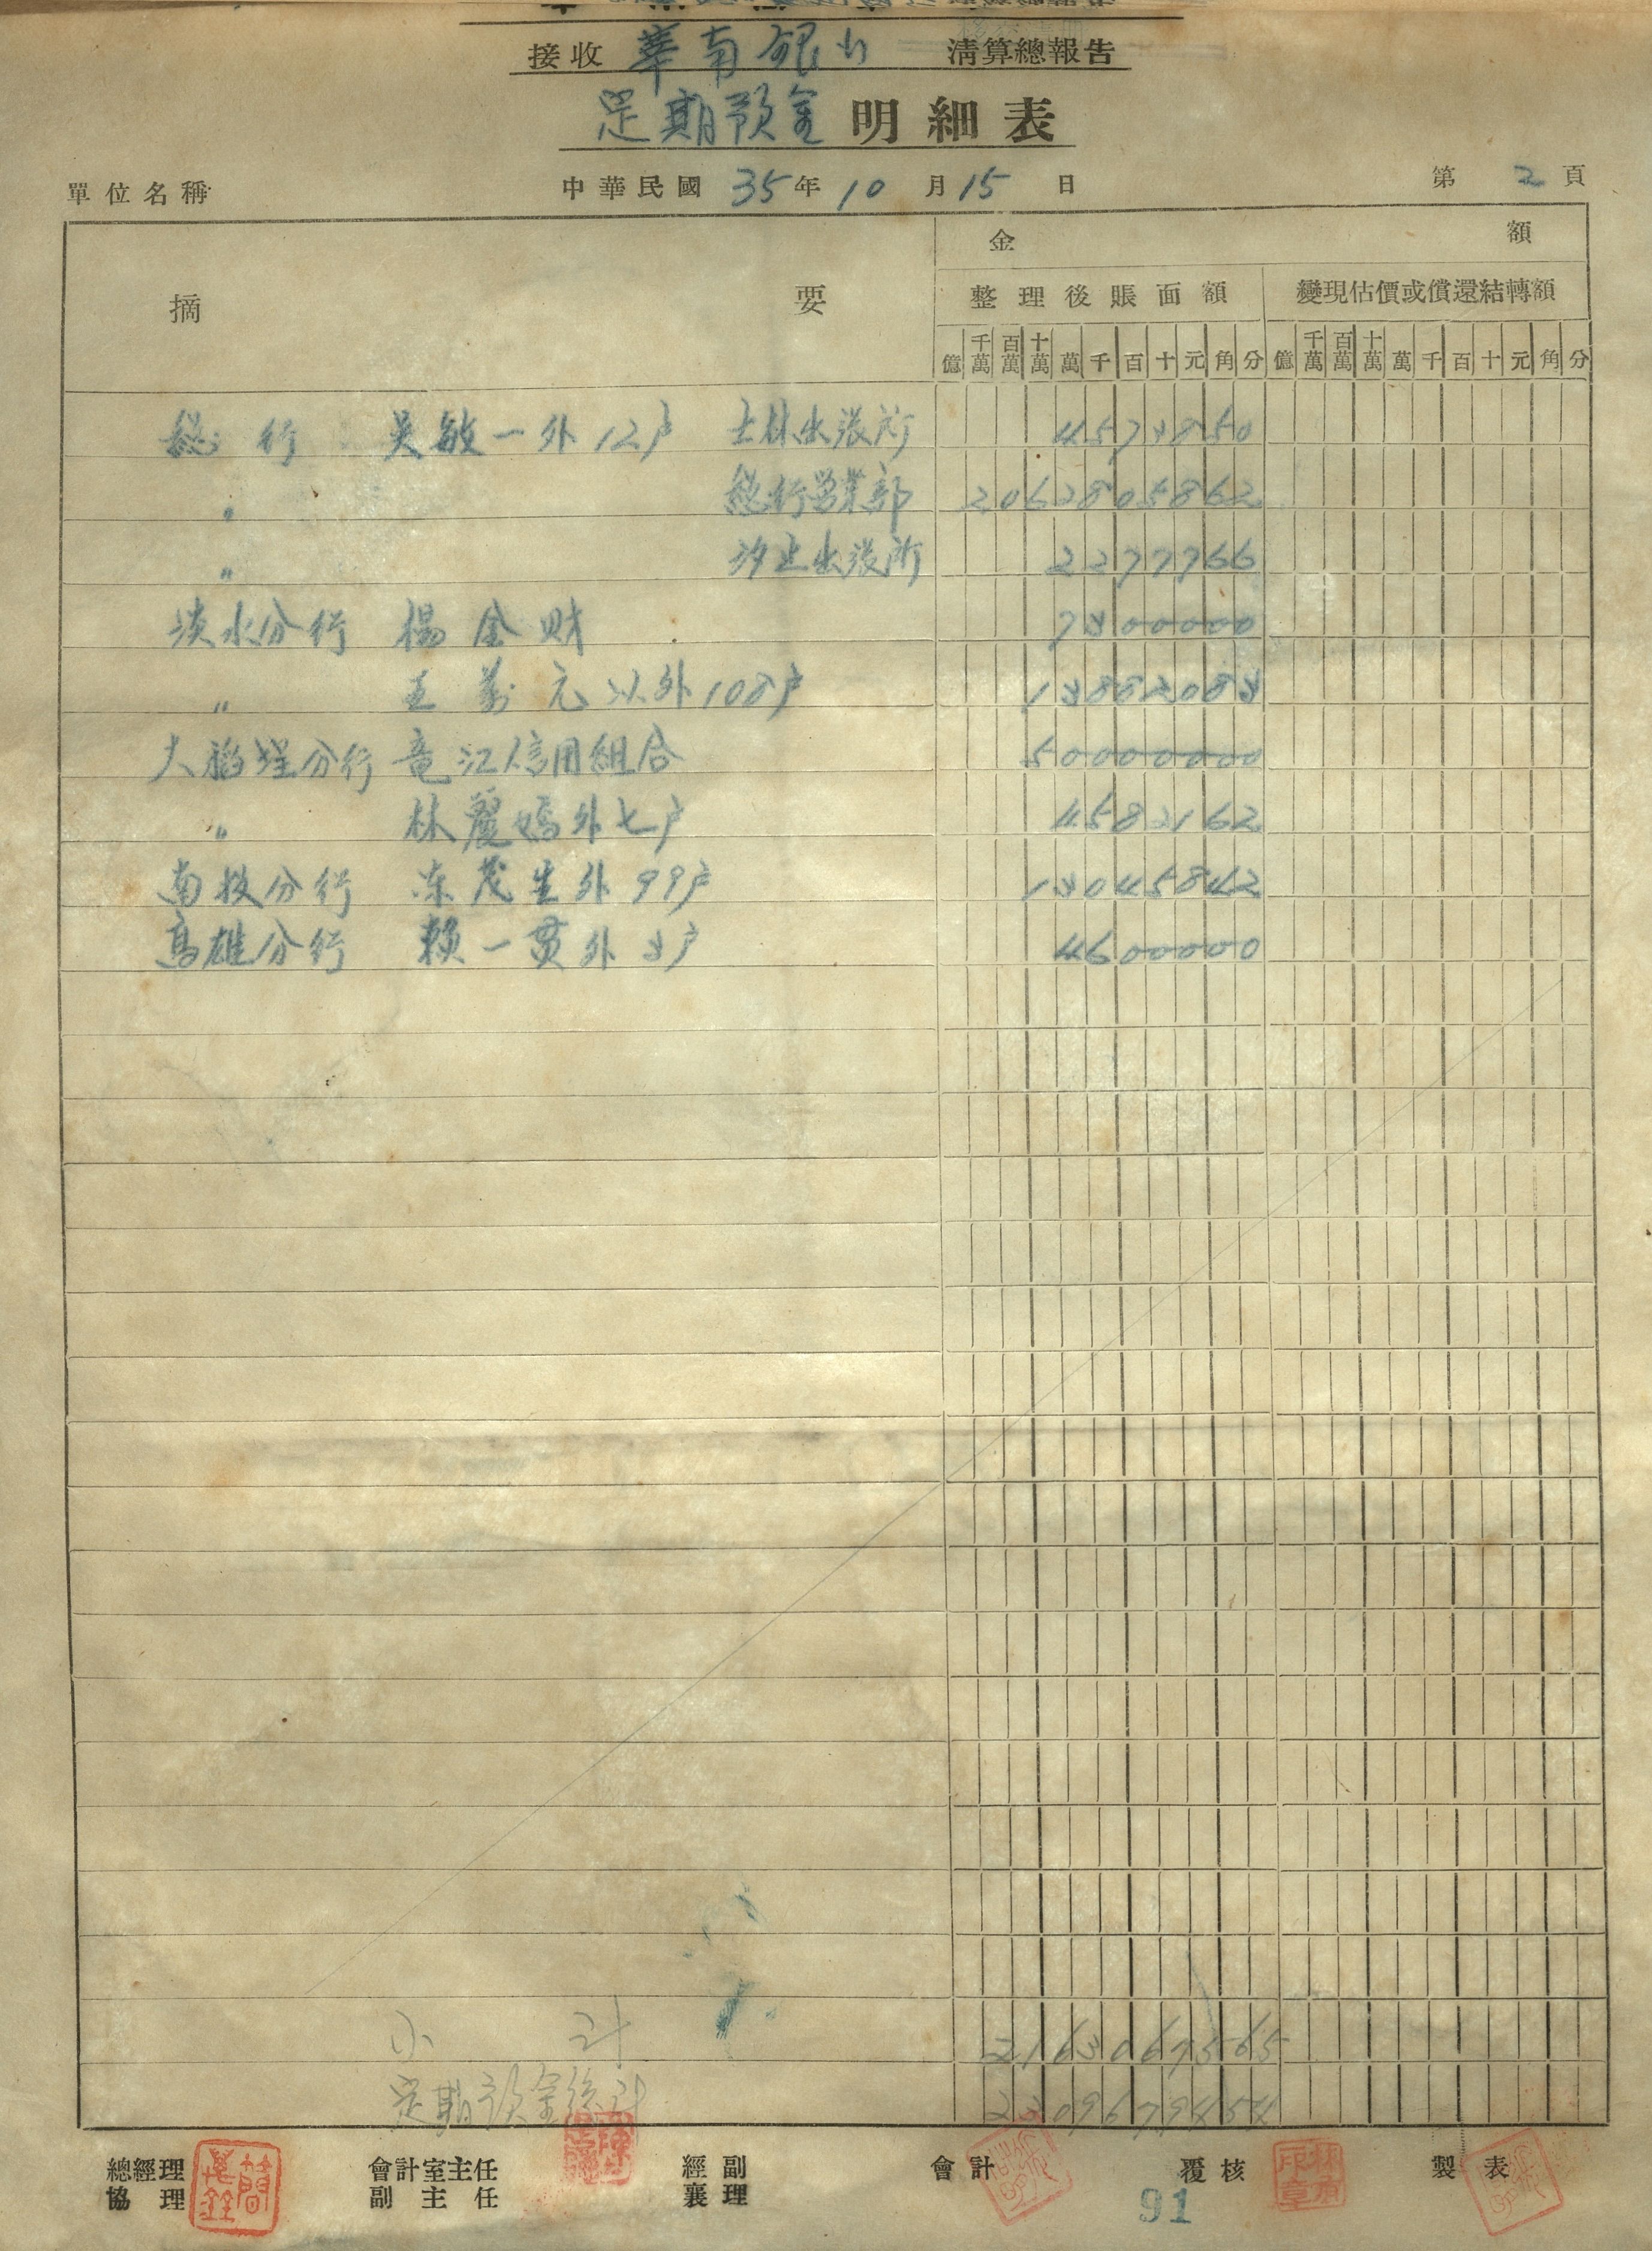 接收 華南銀行 清算總報告
定期預金 明細表
單位名稱 中華民國 35 年 10 月 15 日 第 2 頁
摘 要 金 額
整理後賬面額 變現估價或償還結轉額
億 千萬 百萬 十萬 萬 千 百 十 元 角 分 億 千萬 百萬 十萬 萬 千 百 十 元 角 分
總行 吳敏一外12户 士林出張所 4573850
〃 總行営業部 2062805862
〃 汐止出張所 2277766
淡水分行 楊金財 7300000
〃 王萬元以外108户 13882083
大稻埕分行 竜江信用組合 50000000
〃 林麗嬌外七户 4582162
南投分行 陳茂生外99户 13045842
高雄分行 賴一貫外3户 4600000
小計 2163067565
定期預金總計 2309679454
總經理 會計室主任 經副 會計 覆核 製表
協理 副主任 襄理
91